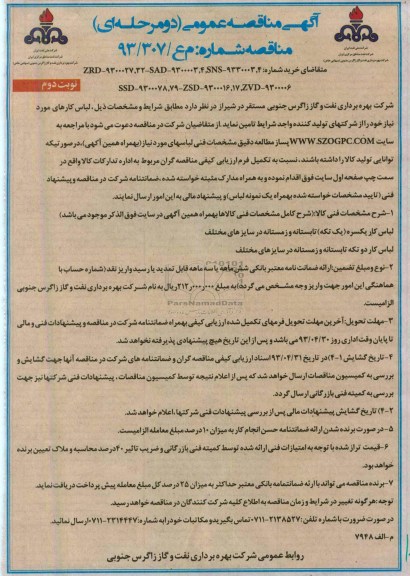 آگهی مناقصه عمومی (دومرحله‌ای)
مناقصه شماره: م ع/۹۳/۳۰۷
متقاضی خرید شماره: SNS-۹۳۳۰۰۰۳,۴ ،SAD-۹۳۰۰۰۳,۴ ،ZRD-۹۳۰۰۰۲۷,۳۲
SSD-۹۳۰۰۰۷۸,۷۹ ،ZSD-۹۳۰۰۰۱۶,۱۷ ،ZVD-۹۳۰۰۰۶
نوبت دوم
شرکت بهره برداری نفت و گاز زاگرس جنوبی مستقر در شیراز در نظر دارد مطابق شرایط و مشخصات ذیل، لباس کارهای مورد
نیاز خود را از شرکتهای تولید کننده واجد شرایط تامین نماید. از متقاضیان شرکت در مناقصه دعوت می شود با مراجعه به
سایت WWW.SZOGPC.COM پس از مطالعه دقیق مشخصات فنی لباسهای مورد نیاز (بهمراه همین آگهی)، در صورتیکه
توانایی تولید کالا را داشته باشند، نسبت به تکمیل فرم ارزیابی کیفی مناقصه گران مربوط به اداره تدارکات کالا واقع در
سمت چپ صفحه اول سایت فوق اقدام نموده و به همراه مدارک مثبته خواسته شده، ضمانتنامه شرکت در مناقصه و پیشنهاد
فنی (تایید مشخصات خواسته شده بهمراه یک نمونه لباس) و پیشنهاد مالی به این امور ارسال نمایند.
۱- شرح مشخصات فنی کالا: (شرح کامل مشخصات فنی کالاها بهمراه همین آگهی در سایت فوق الذکر موجود می باشد)
لباس کار یکسره (یک تکه) تابستانه و زمستانه در سایز های مختلف
لباس کار دو تکه تابستانه و زمستانه در سایز های مختلف
۲- نوع و مبلغ تضمین: ارائه ضمانت نامه معتبر بانکی شش ماهه یا سه ماهه قابل تمدید یا رسید واریز نقد (شماره حساب با
هماهنگی این امور جهت واریز وجه مشخص می گردد) به مبلغ ۲۱۲٫۰۰۰٫۰۰۰ ریال به نام شرکت بهره برداری نفت و گاز زاگرس جنوبی
الزامیست.
۳- مهلت تحویل: آخرین مهلت تحویل فرمهای تکمیل شده ارزیابی کیفی بهمراه ضمانتنامه شرکت در مناقصه و پیشنهادات فنی و مالی
تا پایان وقت اداری روز ۹۳/۰۴/۳۰ می باشد و پس از این تاریخ هیچ پیشنهادی پذیرفته نخواهد شد.
۴- تاریخ گشایش: ۱-۴) در تاریخ ۹۳/۰۴/۳۱ اسناد ارزیابی کیفی مناقصه گران و ضمانتنامه های شرکت در مناقصه آنها جهت گشایش و
بررسی به کمیسیون مناقصات ارسال خواهد شد که پس از اعلام نتیجه توسط کمیسیون مناقصات، پیشنهادات فنی شرکتها نیز جهت
بررسی به کمیته فنی بازرگانی ارسال گردد.
۲-۴) تاریخ گشایش پیشنهادات مالی پس از بررسی پیشنهادات فنی شرکتها، اعلام خواهد شد.
۵- در صورت برنده شدن ارائه ضمانتنامه حسن انجام کار به میزان ۱۰ درصد مبلغ معامله الزامیست.
۶- قیمت تراز شده با توجه به امتیازات فنی ارائه شده توسط کمیته فنی بازرگانی و ضریب تاثیر ۴۰ درصد محاسبه و ملاک تعیین برنده
خواهد بود.
۷- برنده مناقصه می تواند با ارئه ضمانتنامه بانکی معتبر حداکثر به میزان ۲۵ درصد کل مبلغ معامله پیش پرداخت دریافت نماید.
توجه: هرگونه تغییر در شرایط و زمان مناقصه به اطلاع کلیه شرکت کنندگان در مناقصه خواهد رسید.
در صورت ضرورت با شماره تلفن: ۲۱۳۸۵۲۷-۰۷۱۱ تماس بگیرید و مکاتبات خود را به شماره: ۲۳۱۴۴۴۷-۰۷۱۱ ارسال نمائید.
م-الف ۷۹۴۸
روابط عمومی شرکت بهره برداری نفت و گاز زاگرس جنوبی
ParsNamadData